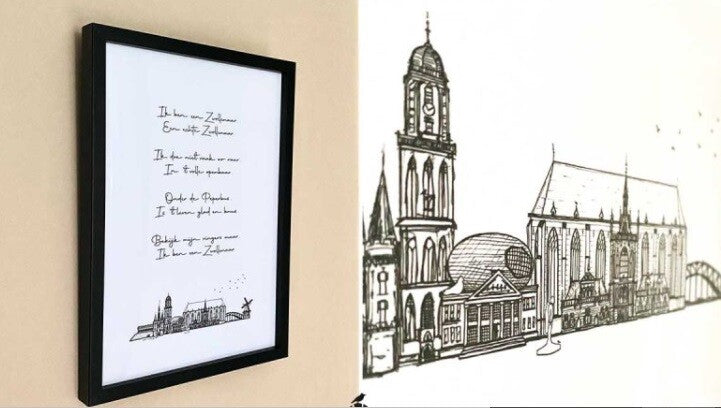 Ik ben een Zwollenaar
Een echte Zwollenaar
Ik doe niet vaak zo raar
In 't volle openbaar
Onder de Peperbus
Is 't leven glad en
Bekijk mijn vingers maar
Ik ben een Zwollenaar